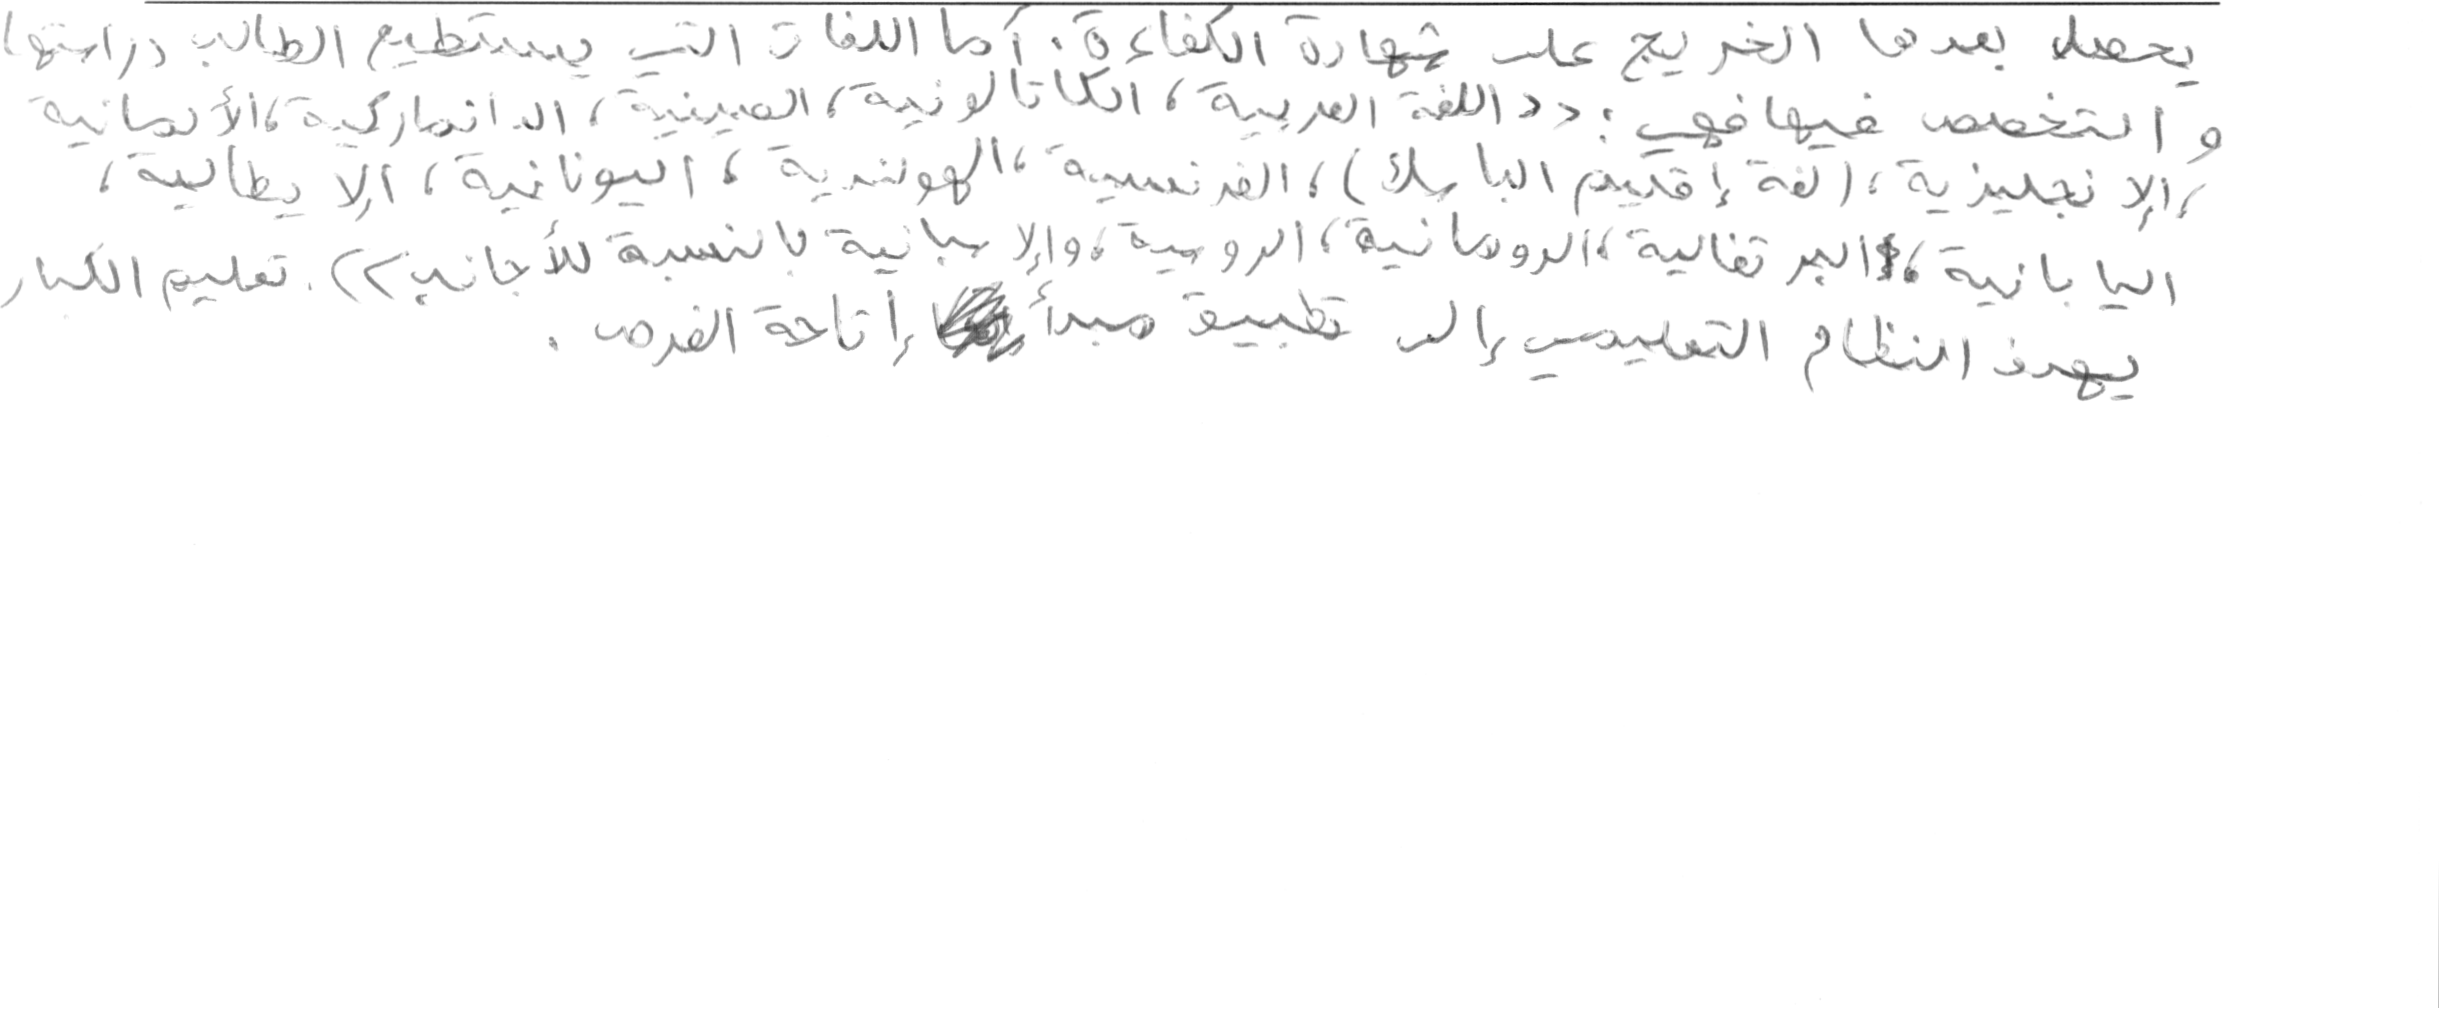 يحصل بعدها الخريج على شهادة الكفاءة. أما اللغات التي يستطيع الطالب دراستها
و التخصص فيها فهي: << اللغة العربية، الكاتالونية، الصينية، الدانماركية، الألمانية
، الإنجليزية، (لغة إقليم الباسك)، الفرنسية، الهولندية، اليونانية، الإيطالية،
اليابانية، البرتغالية، الرومانية، الروسية، والإسبانية بالنسبة للأجانب >>. تعليم الكبار
يهدف النظام التعليمي إلى تطبيق مبدأ إتاحة الفرص.